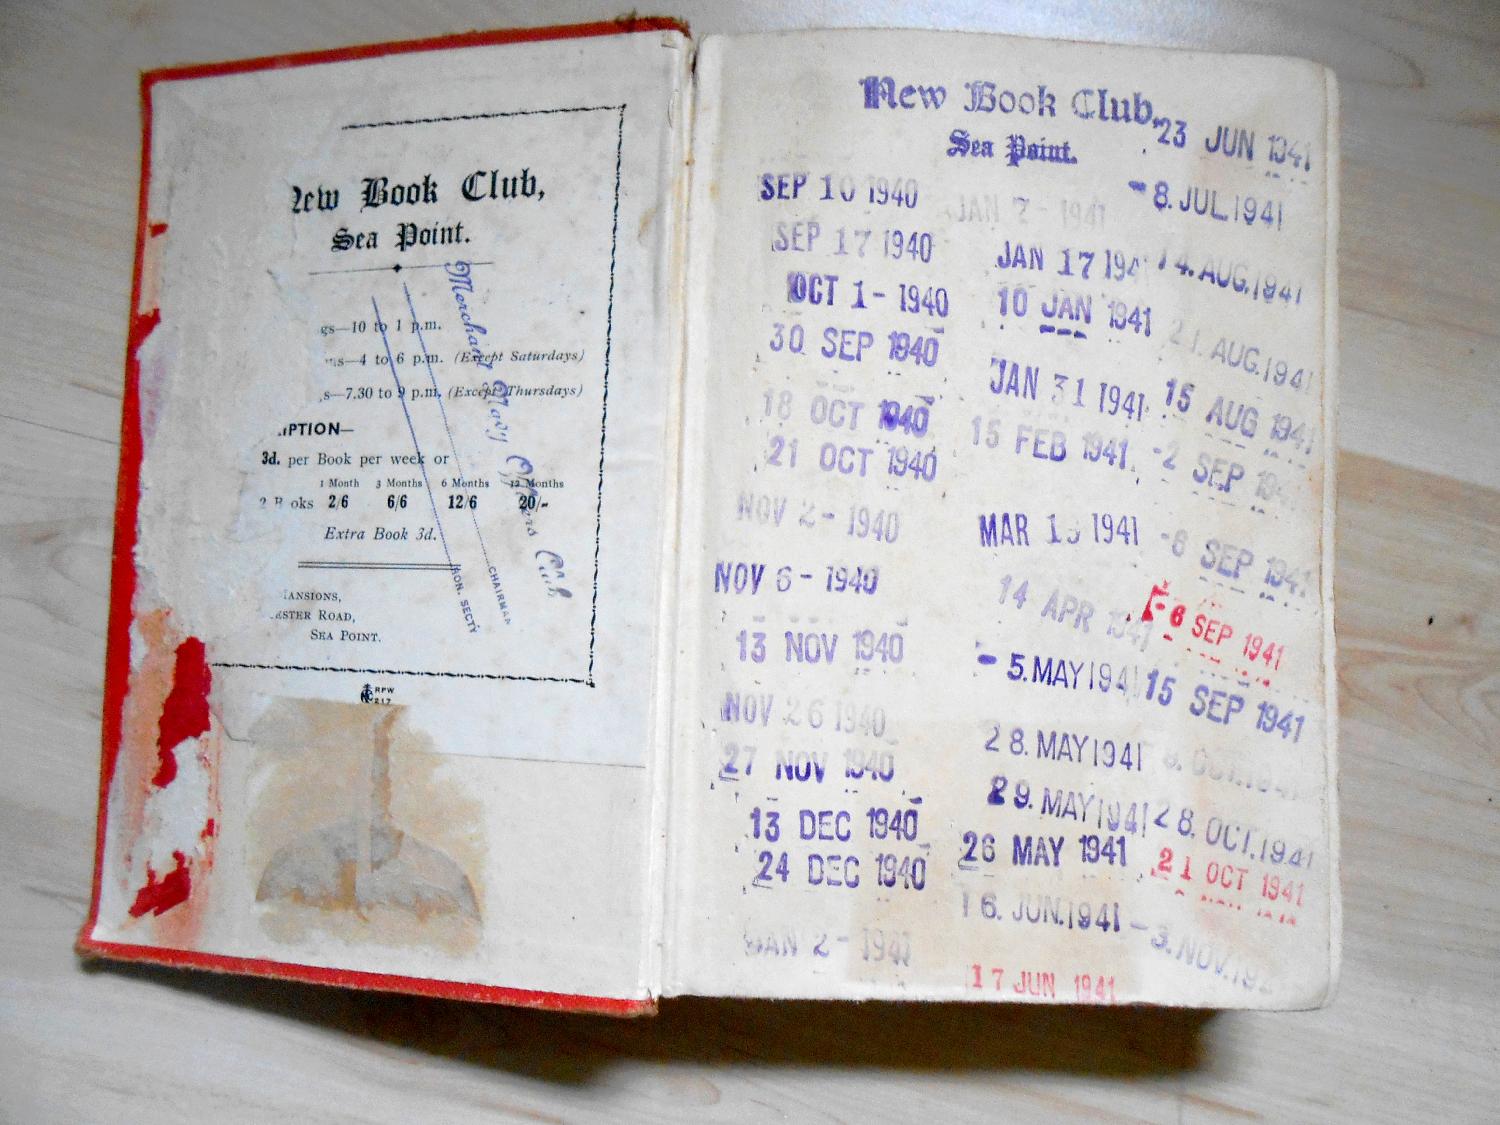 New Book Club,
Sea Point.
gs—10 to 1 p.m.
ns—4 to 6 p.m. (Except Saturdays)
s—7.30 to 9 p.m. (Except Thursdays)
IPTION—
3d. per Book per week or
1 Month 3 Months 6 Months 12 Months
2 B oks 2/6 6/6 12/6 20/-
Extra Book 3d.
MANSIONS,
ESTER ROAD,
SEA POINT.
RPW
217
Merchant Navy Officers Club
HON. SECTY
CHAIRMAN
New Book Club,
Sea Point.
SEP 10 1940
SEP 17 1940
OCT 1- 1940
30 SEP 1940
18 OCT 1940
21 OCT 1940
NOV 2- 1940
NOV 6- 1940
13 NOV 1940
NOV 26 1940
27 NOV 1940
13 DEC 1940
24 DEC 1940
JAN 2- 1941
JAN 2- 1941
JAN 17 194
10 JAN 1941
JAN 31 1941
15 FEB 1941
MAR 1 1941
14 APR 1941
-5. MAY 1941
28. MAY 1941
29. MAY 1941
26 MAY 1941
16. JUN. 1941
17 JUN 1941
23 JUN 1941
-8. JUL 1941
14. AUG. 1941
21. AUG. 1941
15 AUG 1941
-2 SEP 194
-8 SEP 1941
-6 SEP 1941
15 SEP 1941
28. OCT. 1941
21 OCT 1941
-3. NOV. 19